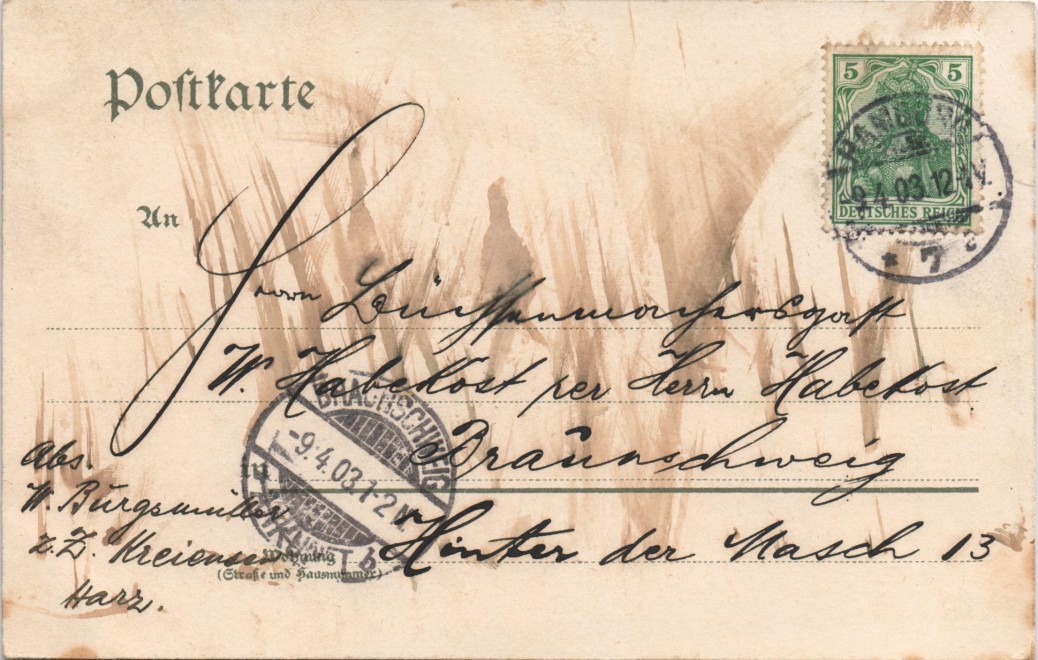 Postkarte
5 5
DEUTSCHES REICH
9.4.03 12-1N.
* 7 c
An
Herrn Büchsenmachersgast
W. Habekost per Herrn Habekost
BRAUNSCHWEIG
-9.4.03.1-2N.
b
in Braunschweig
Abs.
W. Burgsmüller
z. Z. Kreiensen
Harz.
Hinter der Masch 13
Wohnung
(Straße und Hausnummer)